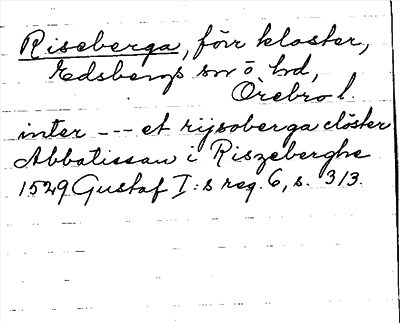 Riseberga, förr kloster,
Edsbergs sn o hd,
Örebro l.
inter --- et rijsoberga clöster
Abbatissan i Riszeberghe
1529 Gustaf I:s reg. 6, s. 313.